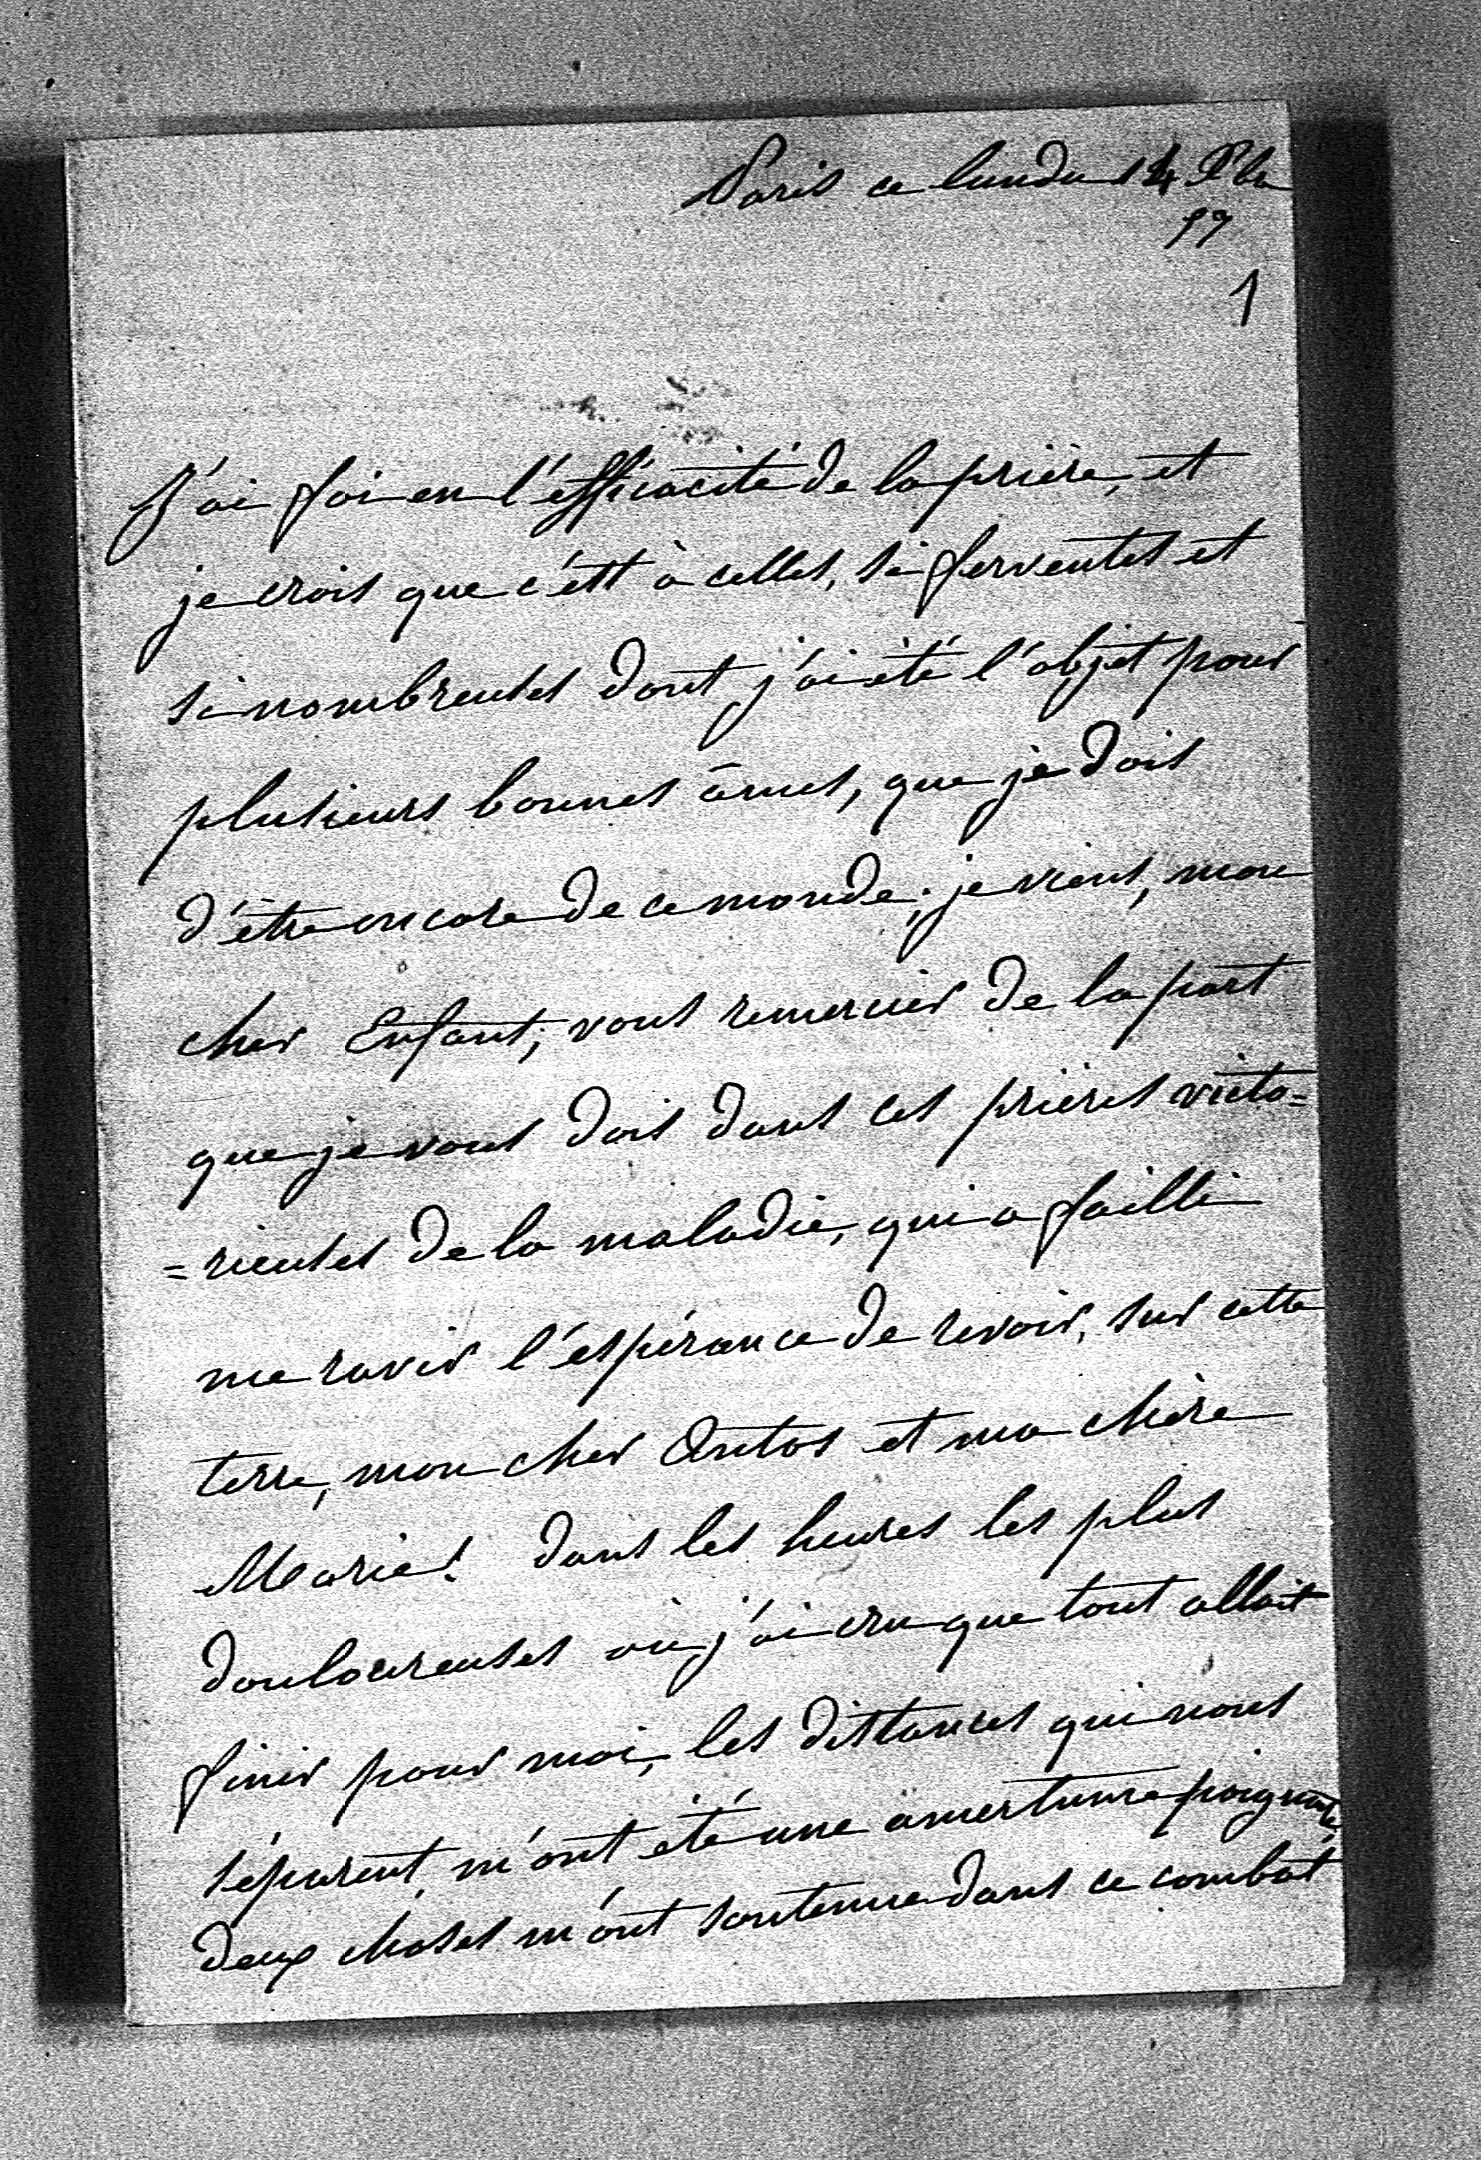 Paris ce lundi 14 Xbre
1
J'ai foi en l'éfficacité de la prière, et
je crois que c'est à celles, si ferventes et
si nombreuses dont j'ai été l'objet pour
plusieurs bonnes âmes, que je dois
d'être encore de ce monde; je viens, mon
cher Enfant, vous remercier de la part
que je vous dois dans ces prières victo=
=rieuses de la maladie, qui a failli
me ravir l'espérance de revoir, sur cette
terre, mon cher Antos et ma chère
Marie! dans les heures les plus
douloureuses où j'ai cru que tout allait
finir pour moi, les distances qui nous
séparent, m'ont été une amertume poignante
deux choses m'ont soutenue dans ce combat